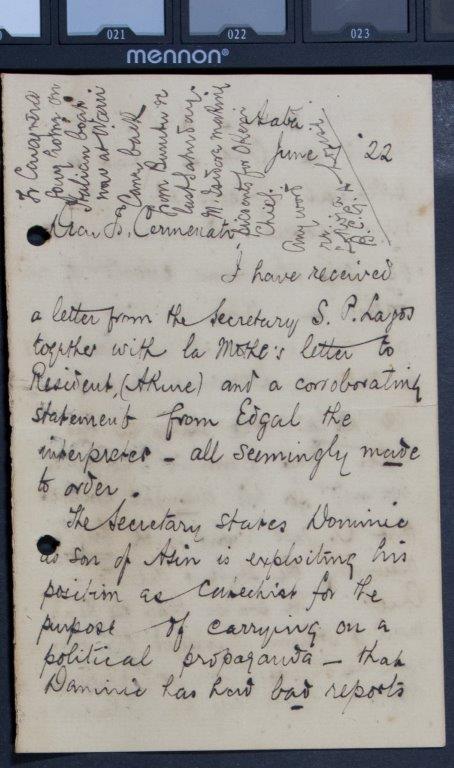 021
022
023
mennon®
Fr Cavagnera
going home on
Italian boat
now at Warri
Came back
from
last Saturday.
making
for
Chief.
Any word
B.C.G.
Asaba
June 7 '22
Dear Fr. Cermenati,
I have received
a letter from the Secretary S. P. Lagos
together with la Mothe's letter to
Resident, (Akure) and a corroborating
statement from Edgal the
interpreter - all seemingly made
to order.
The Secretary states Dominic
as son of Asin is exploiting his
position as Catechist for the
purpose of carrying on a
political propaganda - that
Dominic has had bad reports